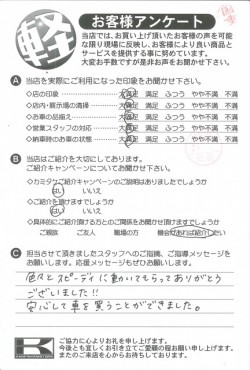 軽
お客様アンケート
当店では、お買い上げ頂いたお客様の声を可能
な限り現場に反映し、お客様により良い商品と
サービスを提供する事に努めています。
大変お手数ですが是非お声をお聞かせ下さい。
A 当店を実際にご利用になった印象をお聞かせ下さい。
◇店の印象 大満足 満足 ふつう やや不満 不満
◇店内・展示場の清掃 大満足 満足 ふつう やや不満 不満
◇お車の品揃え 大満足 満足 ふつう やや不満 不満
◇営業スタッフの対応 大満足 満足 ふつう やや不満 不満
◇納車時のお車の状態 大満足 満足 ふつう やや不満 不満
B 当店はご紹介を大切にしております。
ご紹介キャンペーンについてお聞かせ下さい。
◇カミタケご紹介キャンペーンのご説明はありましたでしょうか
はい いいえ
◇ご紹介を頂けますでしょうか
はい いいえ
◇具体的にご紹介頂ける方とのご関係をお聞かせ頂けますでしょうか
ご親族 ご友人 職場の方 機会があれば紹介したい
C 担当させて頂きましたスタッフへのご指摘、ご指導メッセージを
お願いします。応援メッセージもぜひお願いします。
色々とスピーディに動いてもらってありがとう
ございました!!
安心して車を買うことができました。
K
ご協力に心よりお礼を申し上げます。
今後とも宜しくお引き立てご愛顧の程お願い申し上げます。
またのご来店を心からお待ちしております。